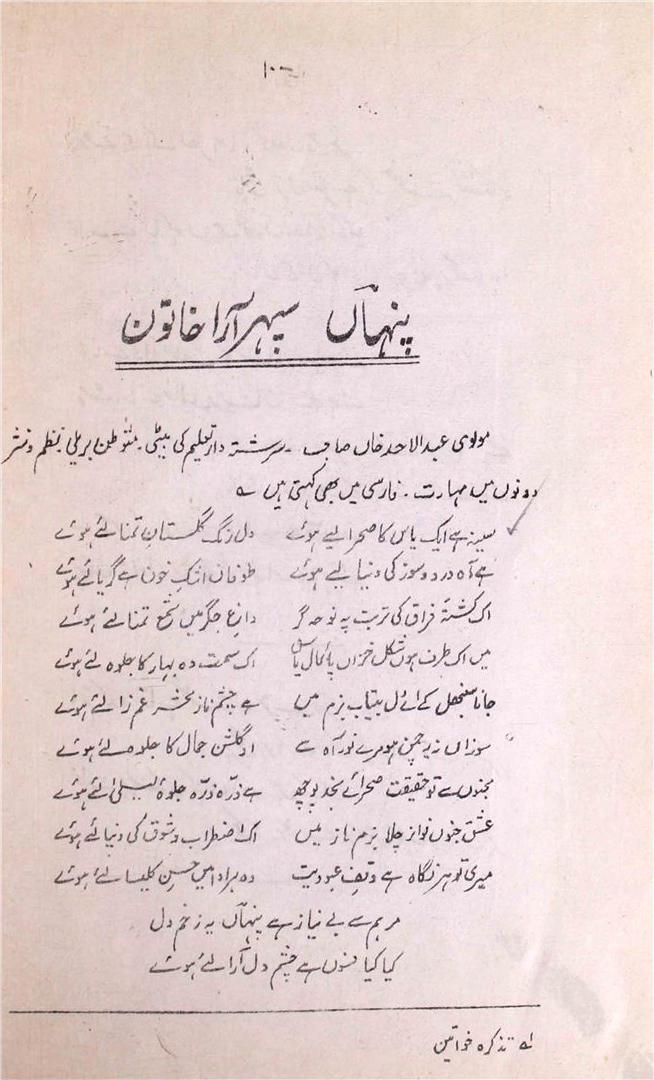 ۱۰۰
پنہاںؔ سپہر آرا خاتون
مولوی عبدالاحد خاں صاحب ۔ سرشتہ دار تعلیم کی بیٹی ۔ متوطن بریلی ۔ نظم و نثر
دونوں میں مہارت ۔ فارسی میں بھی کہتی ہیں ؎
سینہ ہے ایک یاس کا صحرا لیے ہوئے دل رنگ گلستانِ تمنا لئے ہوئے
ہے آہ درد و سوز کی دنیا لیے ہوئے طوفان اشکِ خون ہے گریا لئے ہوئے
اک کشتۂ فراق کی تربت پہ نوحہ گر داغِ جگر میں شمعِ تمنا لئے ہوئے
میں اک طرف ہوں شکل خزاں پائمال یاس اک سمت وہ بہار کا جلوہ لئے ہوئے
جانا سنبھل کے اے دل بیتاب بزم میں ہے چشم ناز محشر غم زا لئے ہوئے
سوزاں نہ یہ چمن ہو مرے نور آہ سے او گلشن جمال کا جلوہ لئے ہوئے
مجنوں سے تو حقیقت صحرائے نجد پوچھ ہے ذرّہ ذرّہ جلوۂ لیلیٰ لئے ہوئے
عشق جنوں نواز چلا بزم ناز میں اک اضطراب و شوق کی دنیا لئے ہوئے
میری تو ہر نگاہ ہے وقفِ عبودیت وہ ہر ادا میں حسنِ کلیسا لئے ہوئے
مرہم سے بے نیاز ہے پنہاںؔ یہ زخم دل
کیا کیا فسوں ہے چشم دل آرا لئے ہوئے
؎ تذکرہ خواتین